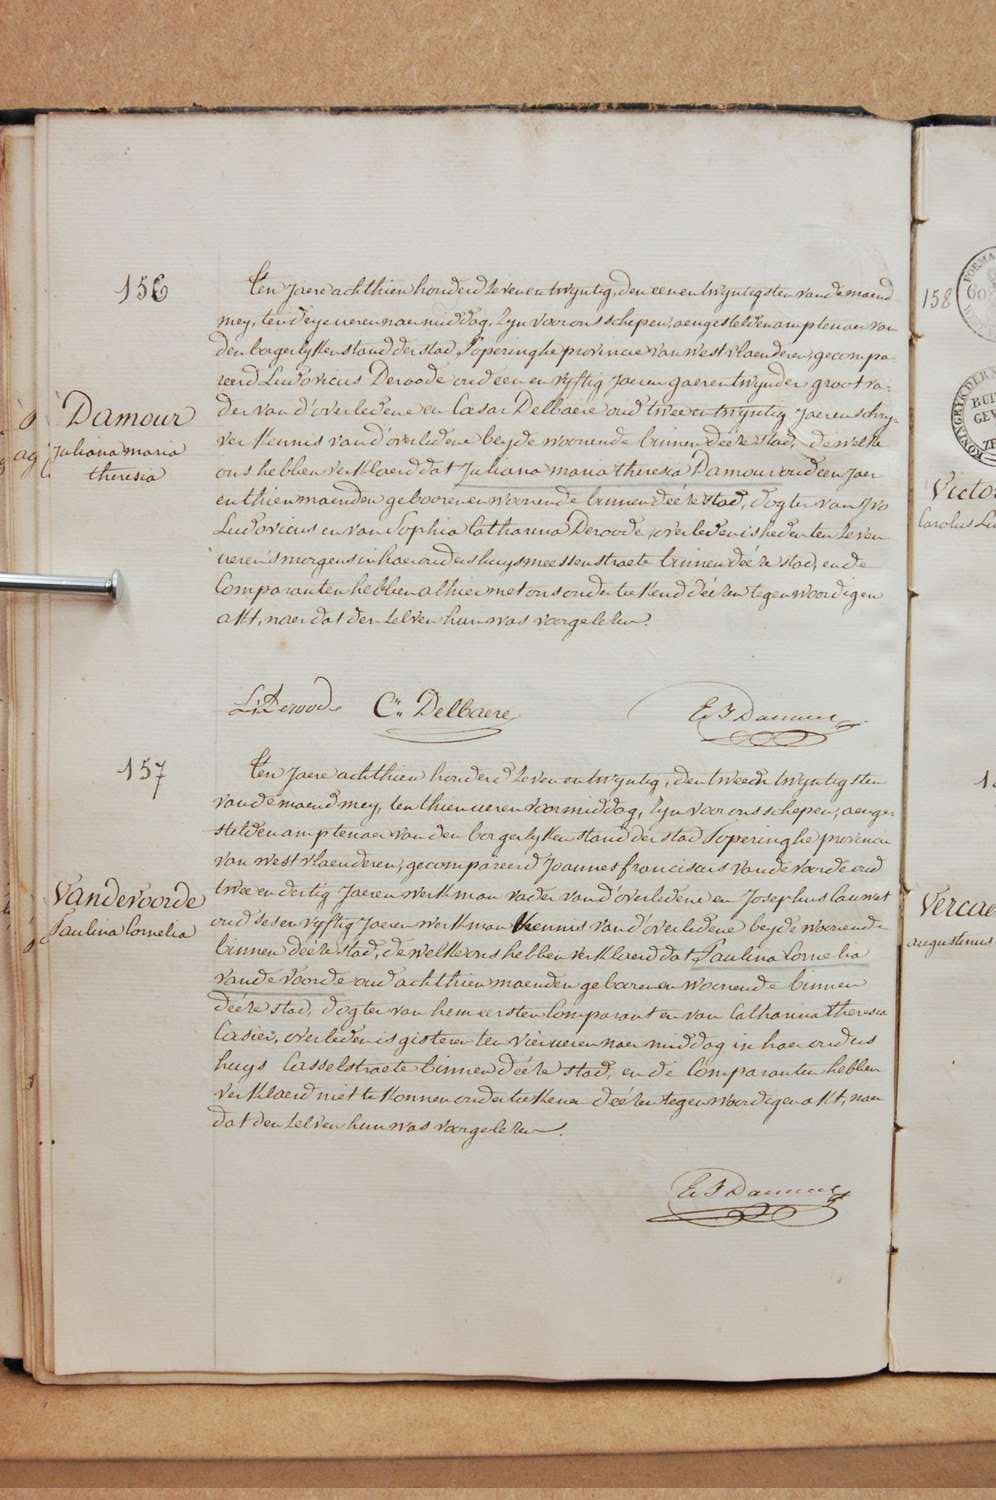 156
Ten Jaere achthien honderd Zeven en twyntig, den een en twyntigsten van de maend
mey, ten deye ueren naer middag, Zyn voor ons schepen, aengestelden amptenaer van
den borgerlyken stand der stad Poperinghe provincie van westvlaenderen, gecompa-
reerd Ludovicus Deroode oud een en vyftig Jaeren gaerentwynder groot va-
Damour
Juliana maria
theresia
der van d'overledene en Cæsar Delbaere oud twee en twyntig Jaeren schry-
ver kennis van d'overledene beyde woonende binnen déése stad, de welke
ons hebben verklaerd dat Juliana maria theresia Damour oud een Jaer
en thien maenden geboren en woonende binnen déése stad, dogter van Ivo
Ludovicus en van Sophia Catharina Deroode, overleden is heden ten Zeven
ueren 's morgens in haer ouders huys meessenstraete binnen déése stad, en de
Comparanten hebben alhier met ons onderteekend déésen tegenwoordigen
akt, naer dat den zelven hun was voorgelesen.
L: Deroode Cr. Delbaere
157
Ten Jaere achthien honderd Zeven en twyntig, den tweeën twyntigsten
van de maend mey, ten thien ueren voormiddag, Zyn voor ons schepen, aenge-
stelden amptenaer van den borgerlyken stand der stad Poperinghe provincie
van westvlaenderen, gecompareerd Joannes franciscus vandevoorde oud
Vandevoorde
Paulina Cornelia
twee en dertig Jaeren werkman vader van d'overledene en Josephus lauwet
oud ses en vyftig Jaeren werkman kennis van d'overledene beyde woonende
binnen déése stad, de welke ons hebben verklaerd dat Paulina Cornelia
vandevoorde oud achthien maenden geboren en woonende binnen
déése stad, dogter van hem eersten Comparant en van Catharina Theresia
Casier, overleden is gisteren ten vier ueren naer middag in haer ouders
huys Casselstraete binnen déése stad, en de Comparanten hebben
verklaerd niet te konnen onderteekenen déésen tegenwoordigen akt, naer
dat den zelven hun was voorgelesen.
158
Victo
Carolus Lu
Vercae
augustinus